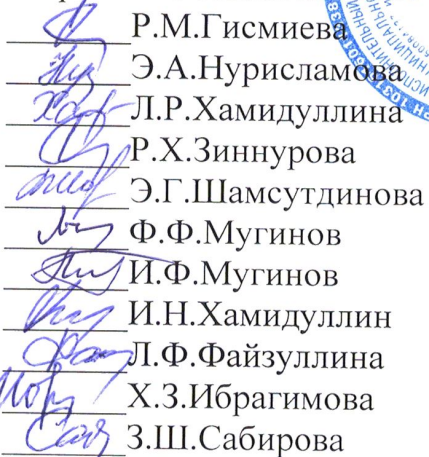 Р.М.Гисмиева
Э.А.Нурисламова
Л.Р.Хамидуллина
Р.Х.Зиннурова
Э.Г.Шамсутдинова
Ф.Ф.Мугинов
И.Ф.Мугинов
И.Н.Хамидуллин
Л.Ф.Файзуллина
Х.З.Ибрагимова
З.Ш.Сабирова